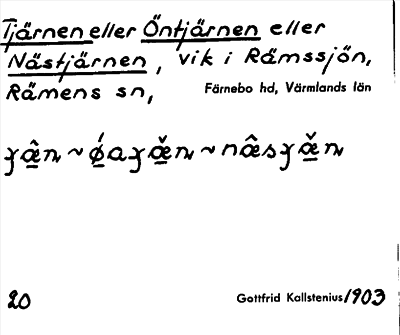 Tjärnen eller Öntjärnen eller
Nästjärnen, vik i Rämssjön,
Rämens sn, Färnebo hd, Värmlands län
20 Gottfrid Kallstenius 1903